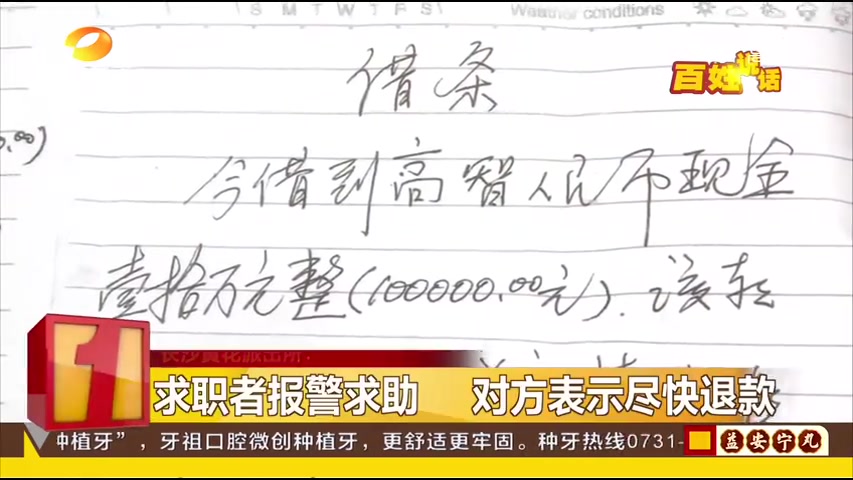 S M T W T F S
Weather conditions
百姓说话
借条
.00)
今借到高智人民币现金
壹拾万元整(100000.00元).该款
长沙黄花派出所:
1
求职者报警求助 对方表示尽快退款
种植牙”,牙祖口腔微创种植牙,更舒适更牢固。种牙热线0731-
益安宁丸